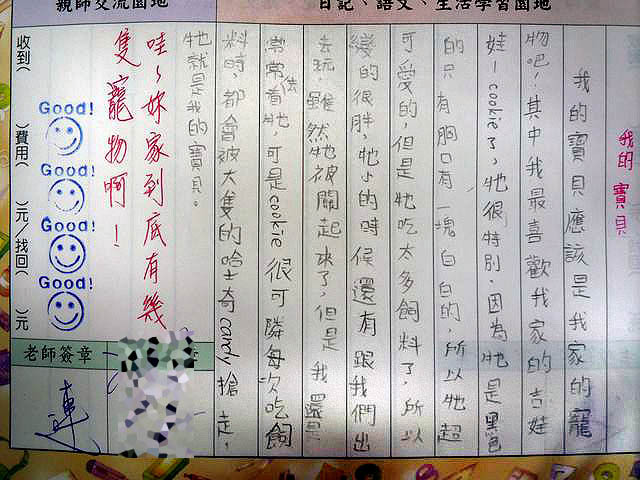 日記、語文、生活學習園地
我的寶貝
我的寶貝應該是我家的寵
物吧！其中我最喜歡我家的吉娃
娃－cookie了，牠很特別。因為牠是黑色
的只有胸口有一塊白白的，所以牠超
可愛的，但是牠吃太多飼料了，所以
變的很胖，牠小的時候還有跟我們出
去玩，雖然牠被關起來了，但是我還是
常常看牠，可是cookie很可憐每次吃飼
料時，都會被大隻的哈士奇candy搶走，
牠就是我的寶貝。
親師交流園地
哇～妳家到底有幾
隻寵物啊！
Good!
Good!
Good!
Good!
收到（　）費用（　）元／找回（　）元
老師簽章
連